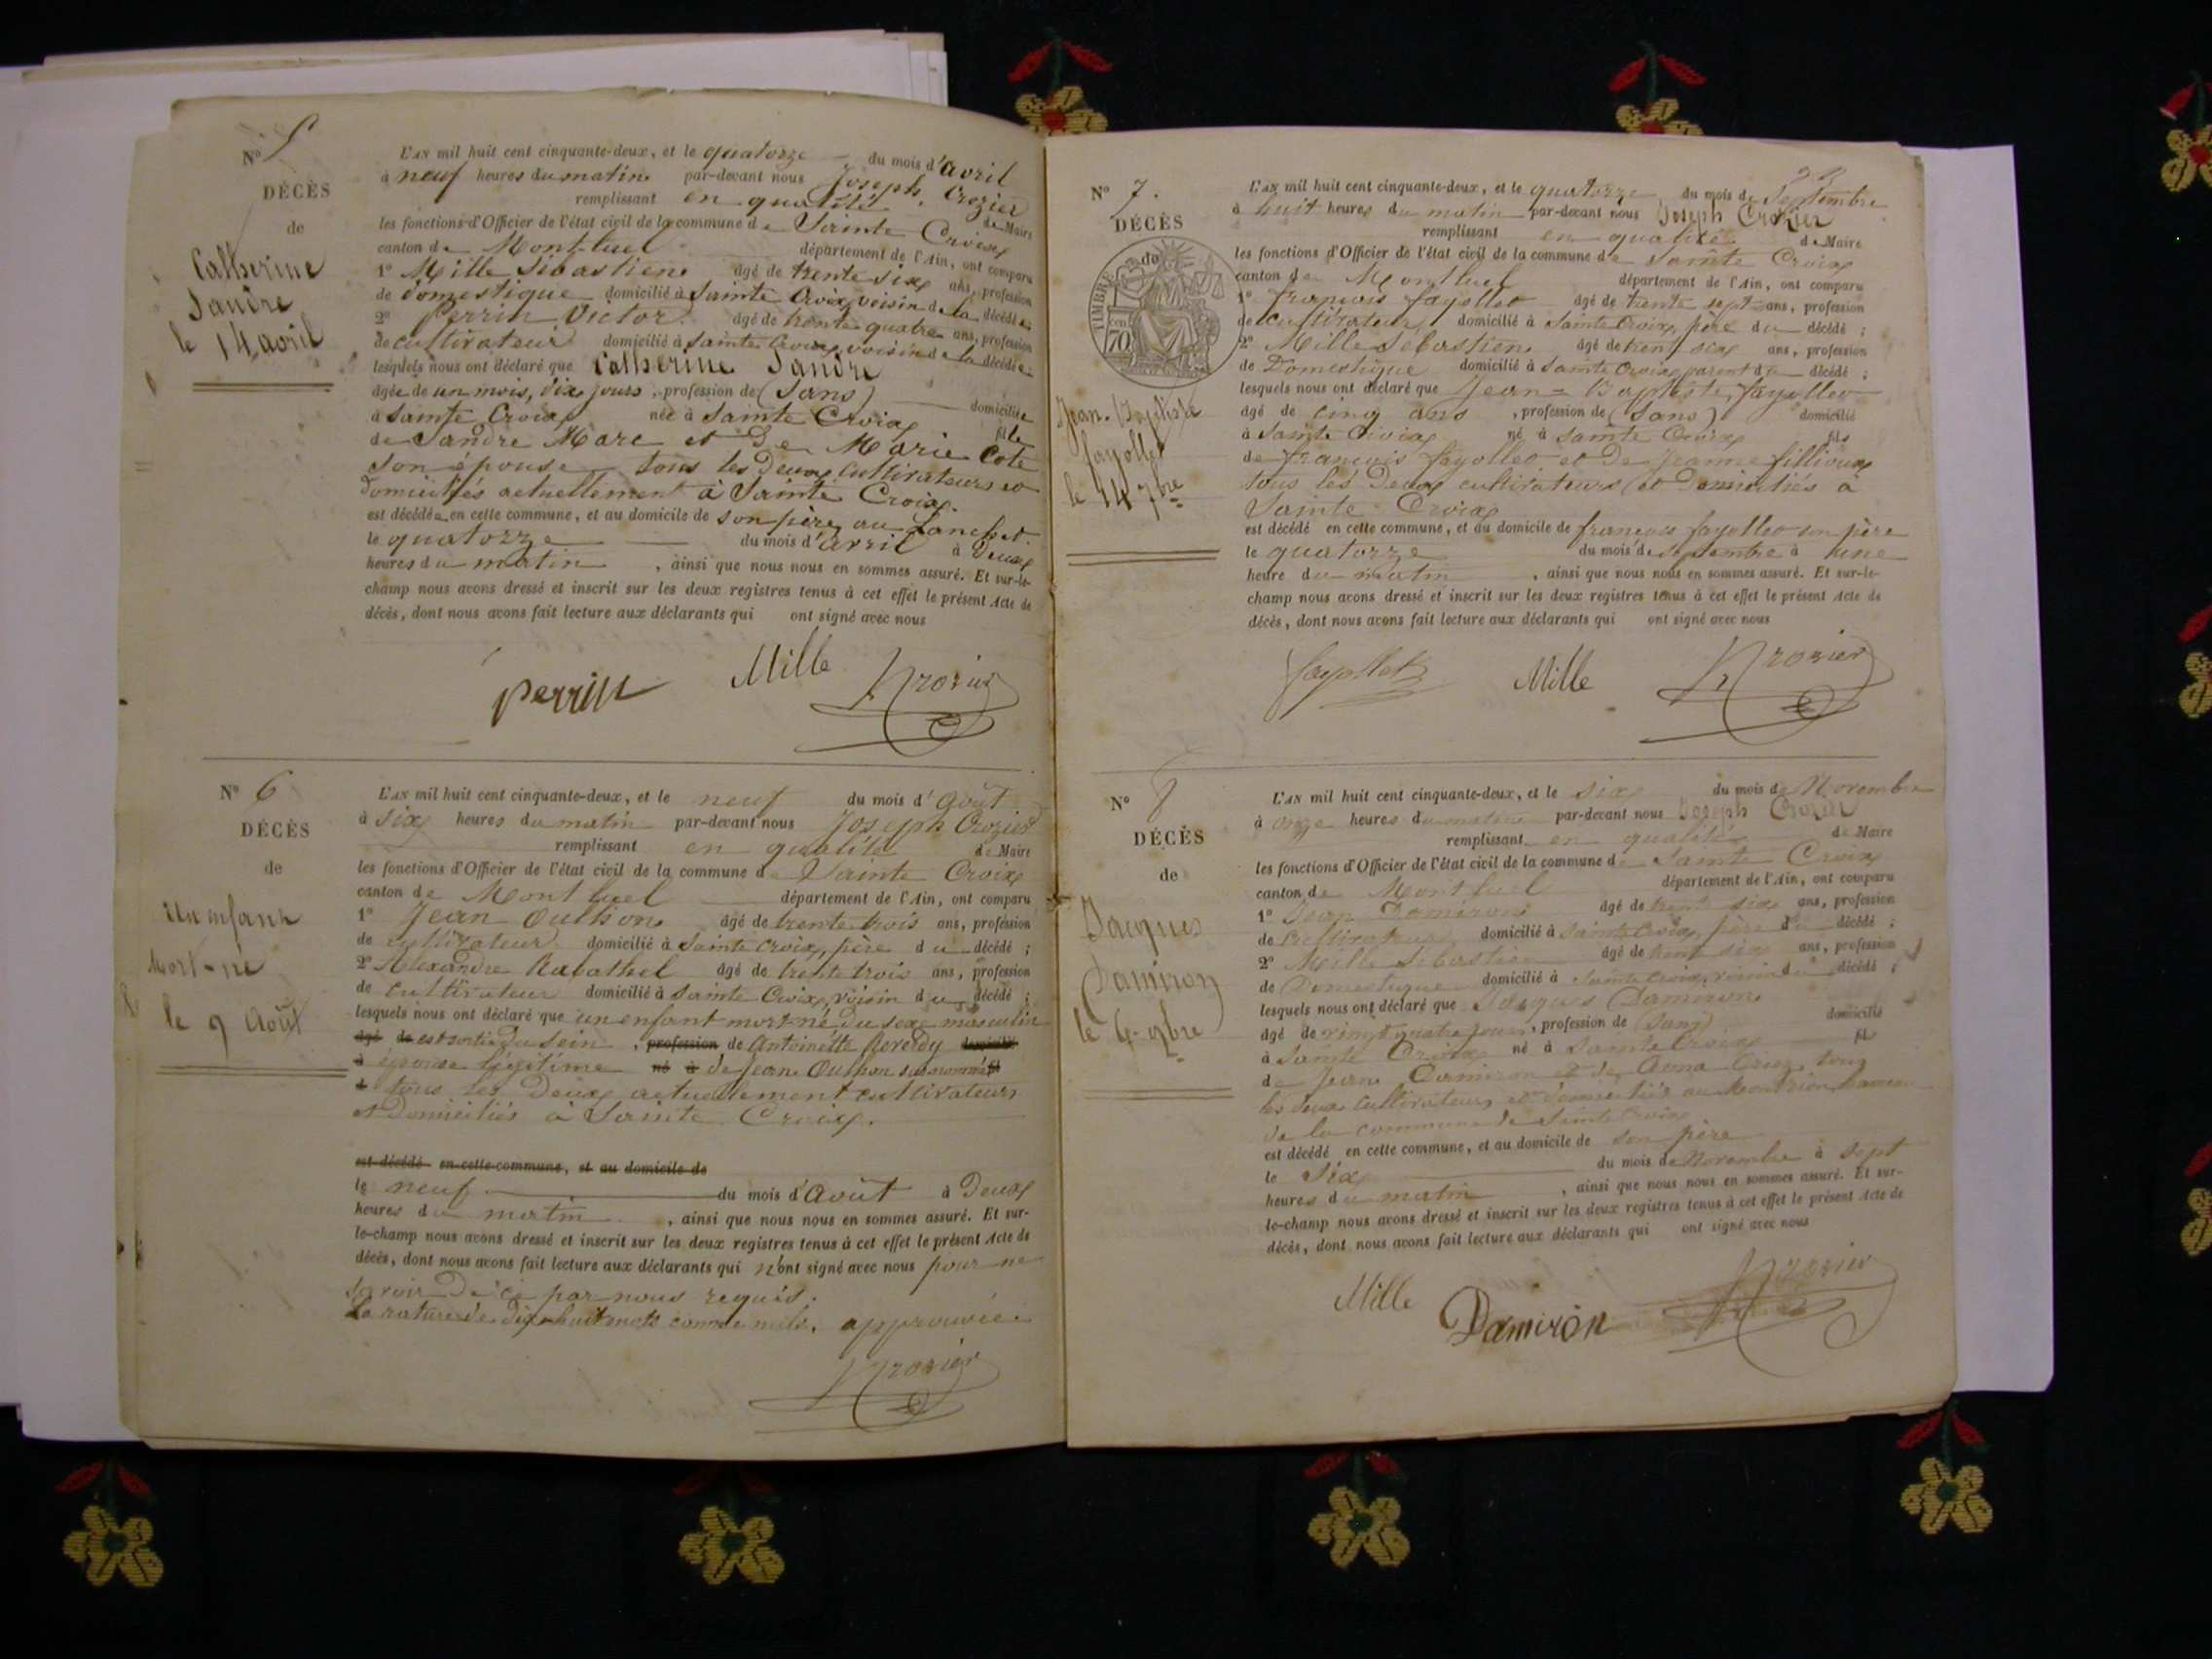 N° 5
DÉCÈS
de
Catherine
Sandre
le 14 avril
L'AN mil huit cent cinquante-deux, et le quatorze du mois d'avril
à neuf heures du matin par-devant nous Joseph Crozier
remplissant en qualité de Maire
les fonctions d'Officier de l'état civil de la commune de Sainte Croix
canton de Montluel département de l'Ain, ont comparu
1° Mille Sébastien âgé de trente six ans, profession
de domestique domicilié à Sainte Croix, voisin de la décédée
2° Perrin Victor âgé de trente quatre ans, profession
de cultivateur domicilié à Sainte Croix voisin de la décédée
lesquels nous ont déclaré que Catherine Sandre
âgée de un mois, dix jours, profession de (sans) domiciliée
à Sainte Croix née à Sainte Croix fille
de Sandre Marc et de Marie Cote
son épouse tous les deux cultivateurs et
domiciliés actuellement à Sainte Croix.
est décédée en cette commune, et au domicile de son père, au
le quatorze du mois d'avril à deux
heures du matin, ainsi que nous nous en sommes assuré. Et sur-le-
champ nous avons dressé et inscrit sur les deux registres tenus à cet effet le présent Acte de
décès, dont nous avons fait lecture aux déclarants qui ont signé avec nous
Perrin Mille Crozier
N° 6
DÉCÈS
de
Un enfant
Mort-né
le 9 Août
L'AN mil huit cent cinquante-deux, et le neuf du mois d'août
à six heures du matin par-devant nous Joseph Crozier
remplissant en qualité de Maire
les fonctions d'Officier de l'état civil de la commune de Sainte Croix
canton de Montluel département de l'Ain, ont comparu
1° Jean Outhon âgé de trente trois ans, profession
de cultivateur domicilié à Sainte Croix, père du décédé ;
2° Alexandre âgé de trente trois ans, profession
de cultivateur domicilié à Sainte Croix, voisin du décédé ;
lesquels nous ont déclaré que un enfant mort-né du sexe masculin
âgé de est sortie du sein, profession de Antoinette domicilié
à épouse légitime né à de Jean Outhon susnommé
tous les deux actuellement cultivateurs
et domiciliés à Sainte Croix.
est décédé en cette commune, et au domicile de
le neuf du mois d'août à deux
heures du matin, ainsi que nous nous en sommes assuré. Et sur-
le-champ nous avons dressé et inscrit sur les deux registres tenus à cet effet le présent Acte de
décès, dont nous avons fait lecture aux déclarants qui n'ont signé avec nous pour ne
savoir de ce par nous requis.
La rature de dix huit mots comme nuls, approuvée
Crozier
N° 7.
DÉCÈS
TIMBRE
70
Jean-Baptiste
fayollet
le 14 7bre
L'AN mil huit cent cinquante-deux, et le quatorze du mois de Septembre
à huit heures du matin par-devant nous Joseph Crozier
remplissant en qualité de Maire
les fonctions d'Officier de l'état civil de la commune de Sainte Croix
canton de Montluel département de l'Ain, ont comparu
1° françois fayollet âgé de trente sept ans, profession
de cultivateur domicilié à Sainte Croix, père du décédé ;
2° Mille Sébastien âgé de trent six ans, profession
de Domestique domicilié à Sainte Croix parent du décédé ;
lesquels nous ont déclaré que Jean-Baptiste fayollet
âgé de cinq ans, profession de (sans) domicilié
à Sainte Croix né à Sainte Croix fils
de françois fayollet et de Jeanne fillioux
tous les deux cultivateurs et domiciliés à
Sainte Croix
est décédé en cette commune, et au domicile de françois fayollet son père
le quatorze du mois de septembre à une
heure du matin, ainsi que nous nous en sommes assuré. Et sur-le-
champ nous avons dressé et inscrit sur les deux registres tenus à cet effet le présent Acte de
décès, dont nous avons fait lecture aux déclarants qui ont signé avec nous
fayollet Mille Crozier
N° 8
DÉCÈS
de
Jacques
Damiron
le 6 9bre
L'AN mil huit cent cinquante-deux, et le six du mois de Novembre
à onze heures du matin par-devant nous Joseph Crozier
remplissant en qualité de Maire
les fonctions d'Officier de l'état civil de la commune de Sainte Croix
canton de Montluel département de l'Ain, ont comparu
1° Jean Damiron âgé de trent six ans, profession
de cultivateur domicilié à Sainte Croix, père du décédé ;
2° Mille Sébastien âgé de trent six ans, profession
de Domestique domicilié à Sainte Croix, voisin du décédé ;
lesquels nous ont déclaré que Jacques Damiron
âgé de vingt quatre jours, profession de (sans) domicilié
à Sainte Croix né à Sainte Croix fils
de Jean Damiron et de tous
les deux cultivateurs et domiciliés au hameau
de la commune de Sainte Croix
est décédé en cette commune, et au domicile de son père
le six du mois de Novembre à sept
heures du matin, ainsi que nous nous en sommes assuré. Et sur-
le-champ nous avons dressé et inscrit sur les deux registres tenus à cet effet le présent Acte de
décès, dont nous avons fait lecture aux déclarants qui ont signé avec nous
Mille Damiron Crozier